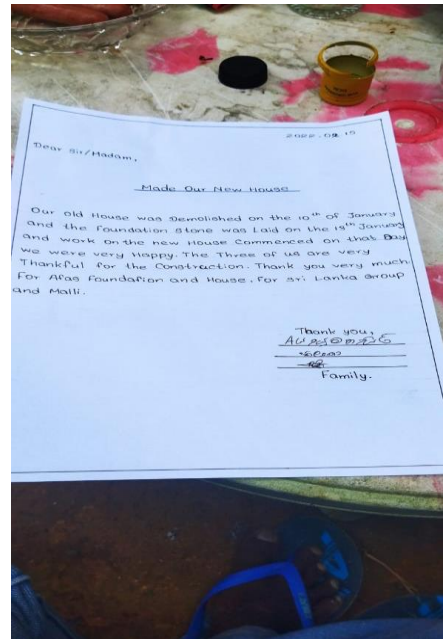 2022.02.15
Dear Sir/Madam,
Made Our New House
Our old House was Demolished on the 10th of January
and the Foundation Stone was Laid on the 18th January
and work on the new House Commenced on that Day
we were very Happy. The Three of us are very
Thankful for the Construction. Thank you very much
For Afas Foundation and House. For Sri Lanka Group
and Malli.
Thank you,
Family.